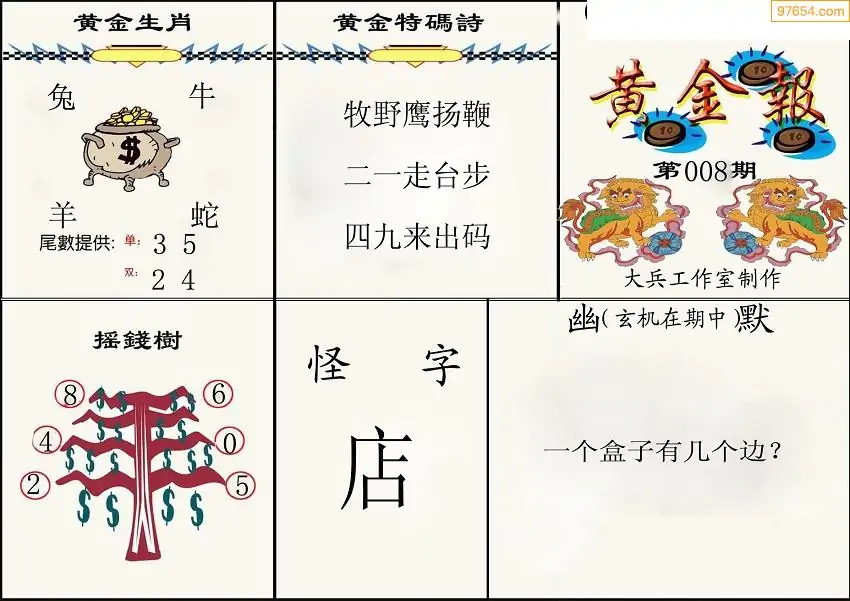 97654.com
黃金生肖
兔 牛
羊 蛇
尾數提供: 单: 3 5
双: 2 4
黃金特碼詩
牧野鹰扬鞭
二一走台步
四九来出码
黃金報
10
10
10
第008期
大兵工作室制作
摇錢樹
8 6
4 0
2 5
怪 字
店
幽(玄机在期中)默
一个盒子有几个边?